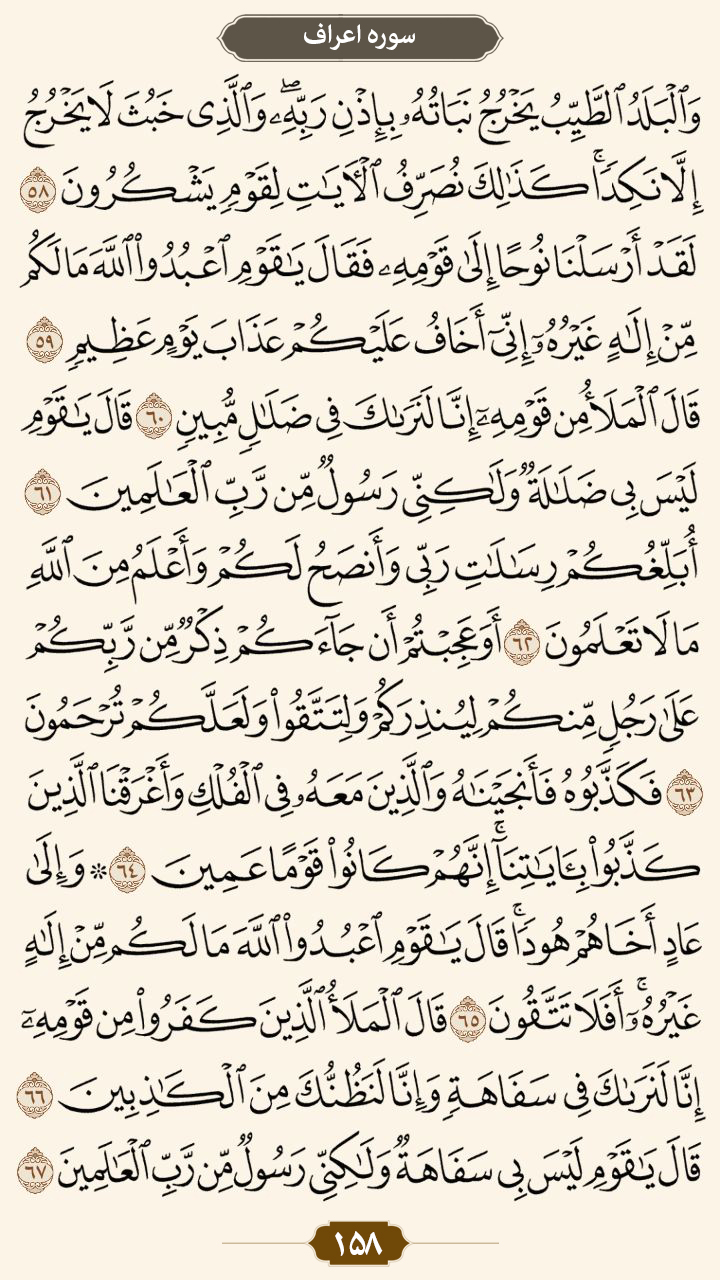 سوره اعراف
وَٱلۡبَلَدُ ٱلطَّيِّبُ يَخۡرُجُ نَبَاتُهُۥ بِإِذۡنِ رَبِّهِۦۖ وَٱلَّذِى خَبُثَ لَا يَخۡرُجُ
إِلَّا نَكِدٗاۚ كَذَٰلِكَ نُصَرِّفُ ٱلۡأٓيَٰتِ لِقَوۡمٖ يَشۡكُرُونَ ٥٨
لَقَدۡ أَرۡسَلۡنَا نُوحًا إِلَىٰ قَوۡمِهِۦ فَقَالَ يَٰقَوۡمِ ٱعۡبُدُواْ ٱللَّهَ مَا لَكُم
مِّنۡ إِلَٰهٍ غَيۡرُهُۥٓ إِنِّىٓ أَخَافُ عَلَيۡكُمۡ عَذَابَ يَوۡمٍ عَظِيمٖ ٥٩
قَالَ ٱلۡمَلَأُ مِن قَوۡمِهِۦٓ إِنَّا لَنَرَىٰكَ فِى ضَلَٰلٖ مُّبِينٖ ٦٠ قَالَ يَٰقَوۡمِ
لَيۡسَ بِى ضَلَٰلَةٞ وَلَٰكِنِّى رَسُولٞ مِّن رَّبِّ ٱلۡعَٰلَمِينَ ٦١
أُبَلِّغُكُمۡ رِسَٰلَٰتِ رَبِّى وَأَنصَحُ لَكُمۡ وَأَعۡلَمُ مِنَ ٱللَّهِ
مَا لَا تَعۡلَمُونَ ٦٢ أَوَعَجِبۡتُمۡ أَن جَآءَكُمۡ ذِكۡرٞ مِّن رَّبِّكُمۡ
عَلَىٰ رَجُلٖ مِّنكُمۡ لِيُنذِرَكُمۡ وَلِتَتَّقُواْ وَلَعَلَّكُمۡ تُرۡحَمُونَ
٦٣ فَكَذَّبُوهُ فَأَنجَيۡنَٰهُ وَٱلَّذِينَ مَعَهُۥ فِى ٱلۡفُلۡكِ وَأَغۡرَقۡنَا ٱلَّذِينَ
كَذَّبُواْ بِـَٔايَٰتِنَآۚ إِنَّهُمۡ كَانُواْ قَوۡمًا عَمِينَ ٦٤ ۞ وَإِلَىٰ
عَادٍ أَخَاهُمۡ هُودٗاۚ قَالَ يَٰقَوۡمِ ٱعۡبُدُواْ ٱللَّهَ مَا لَكُم مِّنۡ إِلَٰهٍ
غَيۡرُهُۥٓۚ أَفَلَا تَتَّقُونَ ٦٥ قَالَ ٱلۡمَلَأُ ٱلَّذِينَ كَفَرُواْ مِن قَوۡمِهِۦٓ
إِنَّا لَنَرَىٰكَ فِى سَفَاهَةٖ وَإِنَّا لَنَظُنُّكَ مِنَ ٱلۡكَٰذِبِينَ ٦٦
قَالَ يَٰقَوۡمِ لَيۡسَ بِى سَفَاهَةٞ وَلَٰكِنِّى رَسُولٞ مِّن رَّبِّ ٱلۡعَٰلَمِينَ ٦٧
۱۵۸